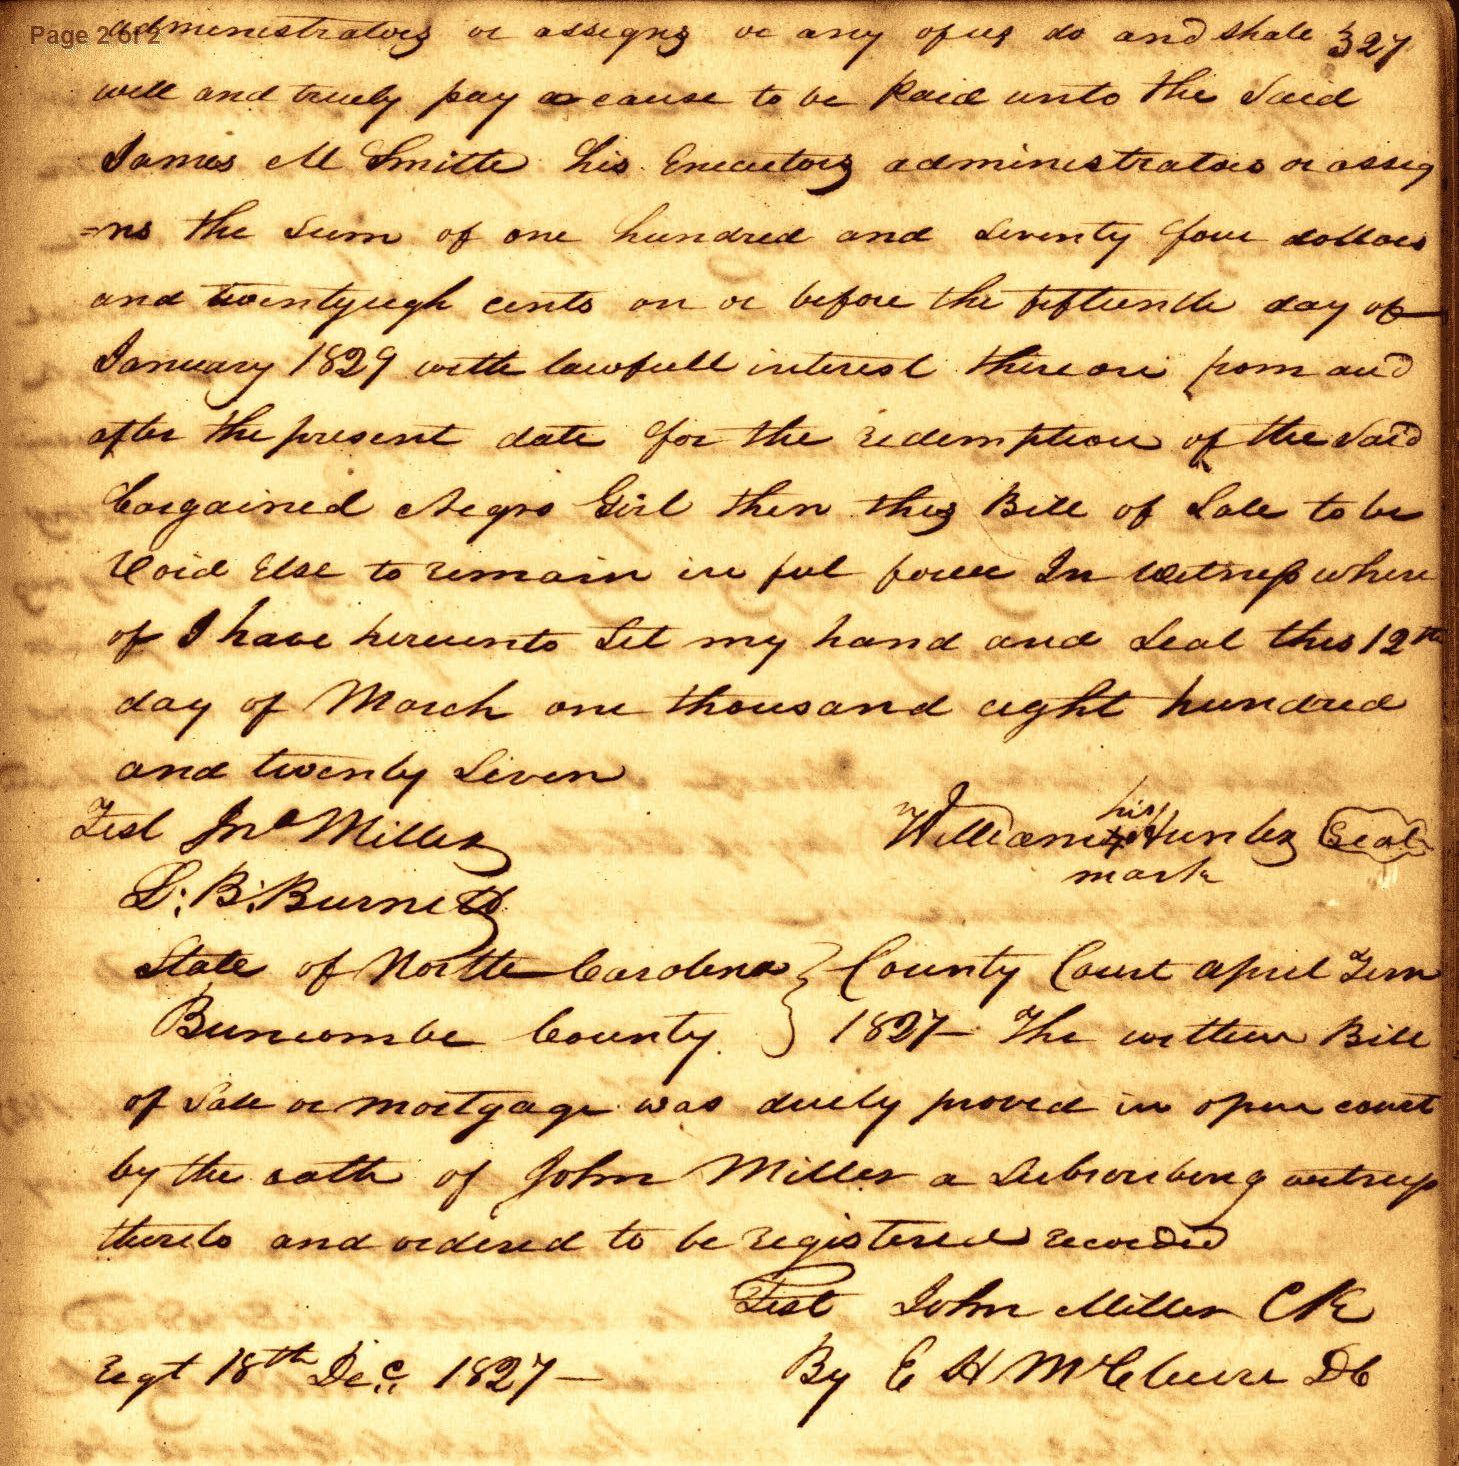 Page 2 of 2
administrators or assigns or any of us do and shall 327
will and truely pay or cause to be Paid unto the Said
James M Smith his Executors administrators or assig
=ns the Sum of one hundred and Seventy four dollars
and twentyeigh cents on or before the fifteenth day of
January 1829 with lawfull interest thereon from and
after the present date for the redemption of the Said
bargained Negro Girl then this Bill of Sale to be
Void Else to remain in ful force In Witness where
of I have hereunto Set my hand and Seal this 12th
day of March one thousand eight hundred
and twenty Seven
Test Jno Miller
his
William Hunter Seal
mark
B. Burnett
State of North Carolina } County Court april Term
Buncombe County } 1827 The within Bill
of Sale or mortgage was duely proved in open court
by the oath of John Miller a Subscribing witness
thereto and ordered to be registered recorded
Test John Miller Clk
regt 18th Dec. 1827 By E H McClure DC